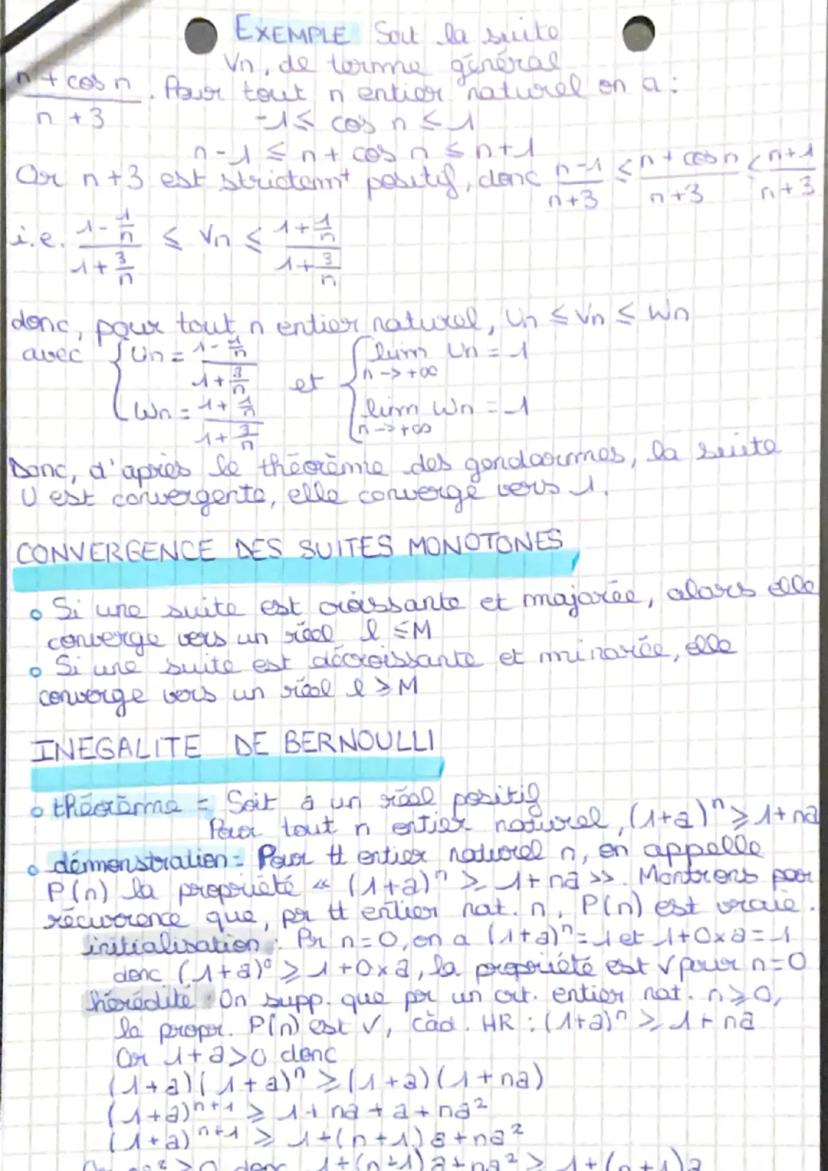 EXEMPLE Soit la suite
Vn, de terme général
n + cos n / n + 3 . Pour tout n entier naturel on a :
-1 ≤ cos n ≤ 1
n-1 ≤ n + cos n ≤ n+1
Or n+3 est strictemt positif, donc n-1 / n+3 ≤ n + cos n / n+3 ≤ n+1 / n+3
i.e. 1 - 1/n / 1 + 3/n ≤ Vn ≤ 1 + 1/n / 1 + 3/n
donc, pour tout n entier naturel, Un ≤ Vn ≤ Wn
avec { Un = 1 - 1/n / 1 + 3/n et { lim Un = 1 n -> +∞
Wn = 1 + 1/n / 1 + 3/n lim Wn = 1 n -> +∞
Donc, d'après le théorème des gendarmes, la suite
U est convergente, elle converge vers 1.
CONVERGENCE DES SUITES MONOTONES
o Si une suite est croissante et majorée, alors elle
converge vers un réel l ≤ M
o Si une suite est décroissante et minorée, elle
converge vers un réel l ≥ M
INEGALITE DE BERNOULLI
o théorème = Soit a un réel positif
Pour tout n entier naturel, (1+a)ⁿ ≥ 1+na
o démonstration = Pour tt entier naturel n, on appelle
P(n) la propriété « (1+a)ⁿ ≥ 1+na ». Montrons par
récurrence que, pr tt entier nat. n, P(n) est vraie.
initialisation : Pr n=0, on a (1+a)ⁿ = 1 et 1+0×a = 1
donc (1+a)⁰ ≥ 1+0×a, la propriété est V pour n=0
hérédité : On supp. que pr un crt. entier nat. n ≥ 0,
la propr. P(n) est V, càd. HR : (1+a)ⁿ ≥ 1+na
Or 1+a>0 donc
(1+a)(1+a)ⁿ ≥ (1+a)(1+na)
(1+a)ⁿ⁺¹ ≥ 1+na+a+na²
(1+a)ⁿ⁺¹ ≥ 1+(n+1)a+na²
Or na² ≥ 0 donc 1+(n+1)a+na² ≥ 1+(n+1)a